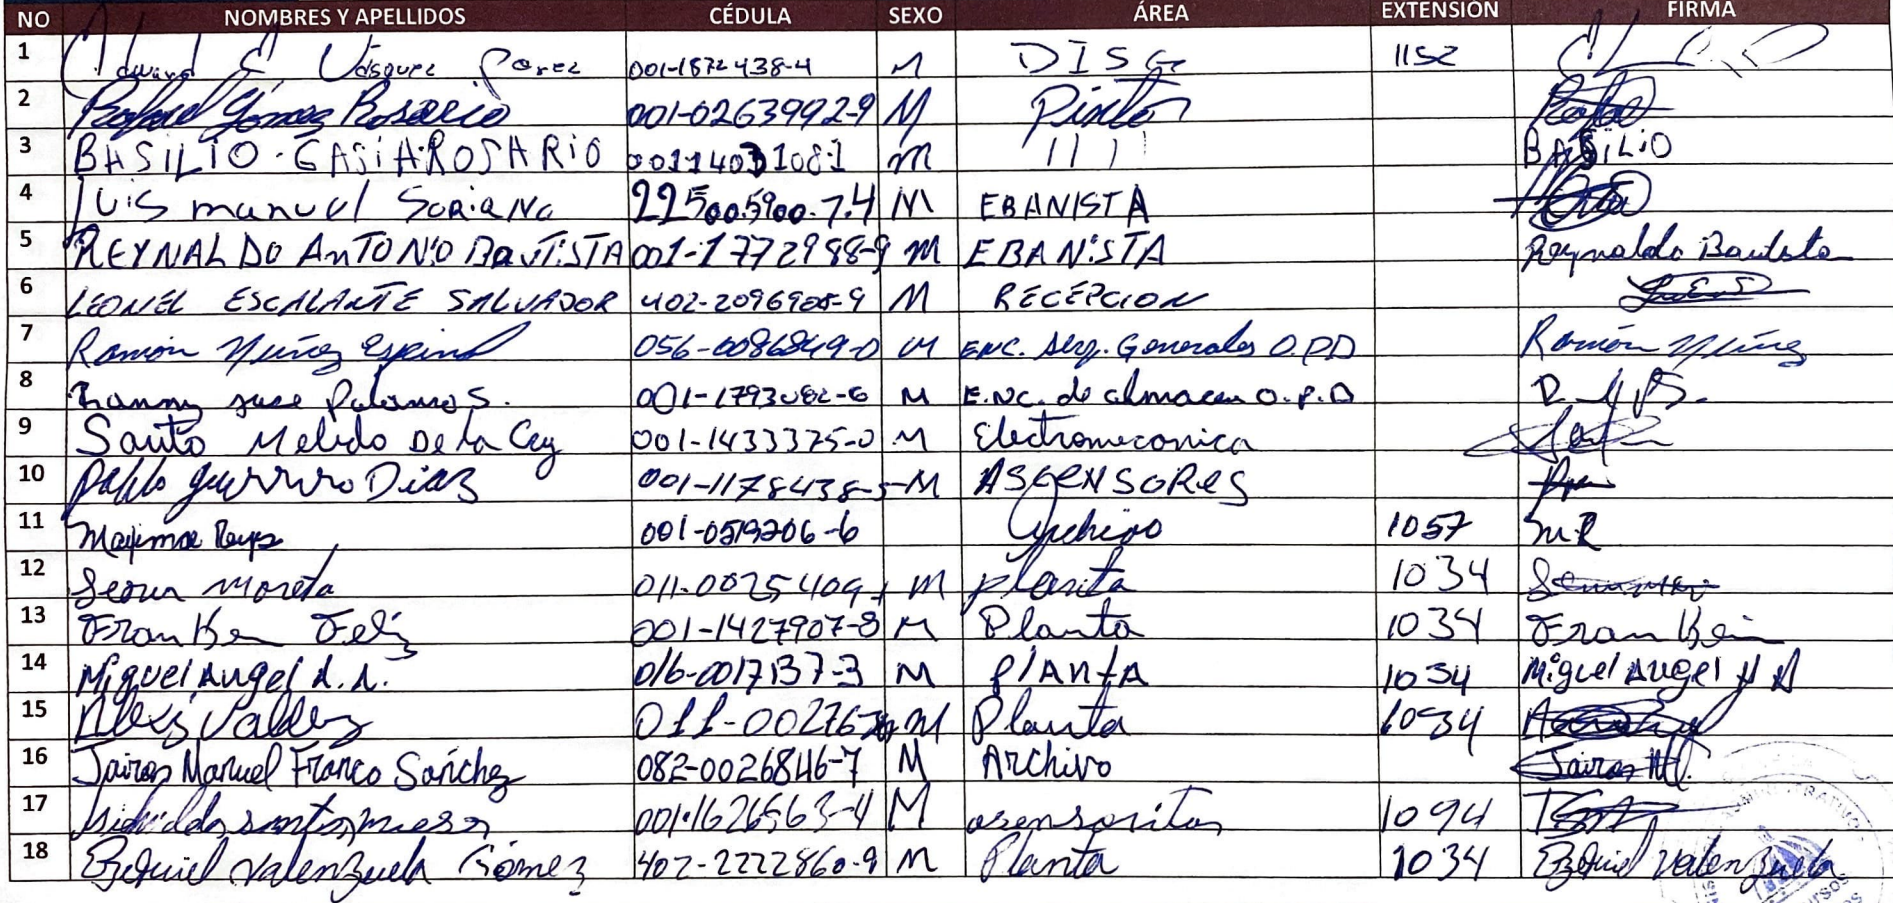 NO NOMBRES Y APELLIDOS CÉDULA SEXO ÁREA EXTENSIÓN FIRMA
1 Edward E. Vásquez Perez 001-1872438-4 M DISG 1152
2 Rafael Gómez Rosario 001-0263992-9 M Pintor Rafael
3 BASILIO GASIA ROSARIO 00114031081 M 1111 BASILIO
4 Luis manuel Soriano 225005900-7.4 M EBANISTA
5 REYNALDO AnTONiO BAUTiSTA 001-1772988-9 M EBANiSTA Reynaldo Bautista
6 LEONEL ESCALANTE SALVADOR 402-2096908-9 M RECEPCION
7 Ramón Núñez Espinal 056-0086849-0 M ENC. Serg. Generales O.P.D Ramón Núñez
8 Ranny jose Palomo S. 001-1793082-6 M E.NC. de almacen O.P.D
9 Santo Melido De la Cruz 001-1433375-0 M Electromeconica
10 Pablo guerrero Diaz 001-1178438-5 M ASCENSORES
11 Maxima Reyes 001-0519206-6 Archivo 1057 M.R
12 moreta 011-0025409-1 M planta 1034
13 Franken Feliz 001-1427907-8 M Planta 1034 Franken
14 Miguel Angel A.A. 016-0017137-3 M PlANtA 1034 Miguel Angel A A
15 Alexis Valdez 011-00276 M Planta 1034
16 Jairon Manuel Franco Sánchez 082-0026846-7 M Archivo Jairon Ml.
17 santos mesa 001-1626563-4 M asensorita 1094
18 Ezequiel Valenzuela Gómez 402-2222860-9 M Planta 1034 Ezequiel Valenzuela